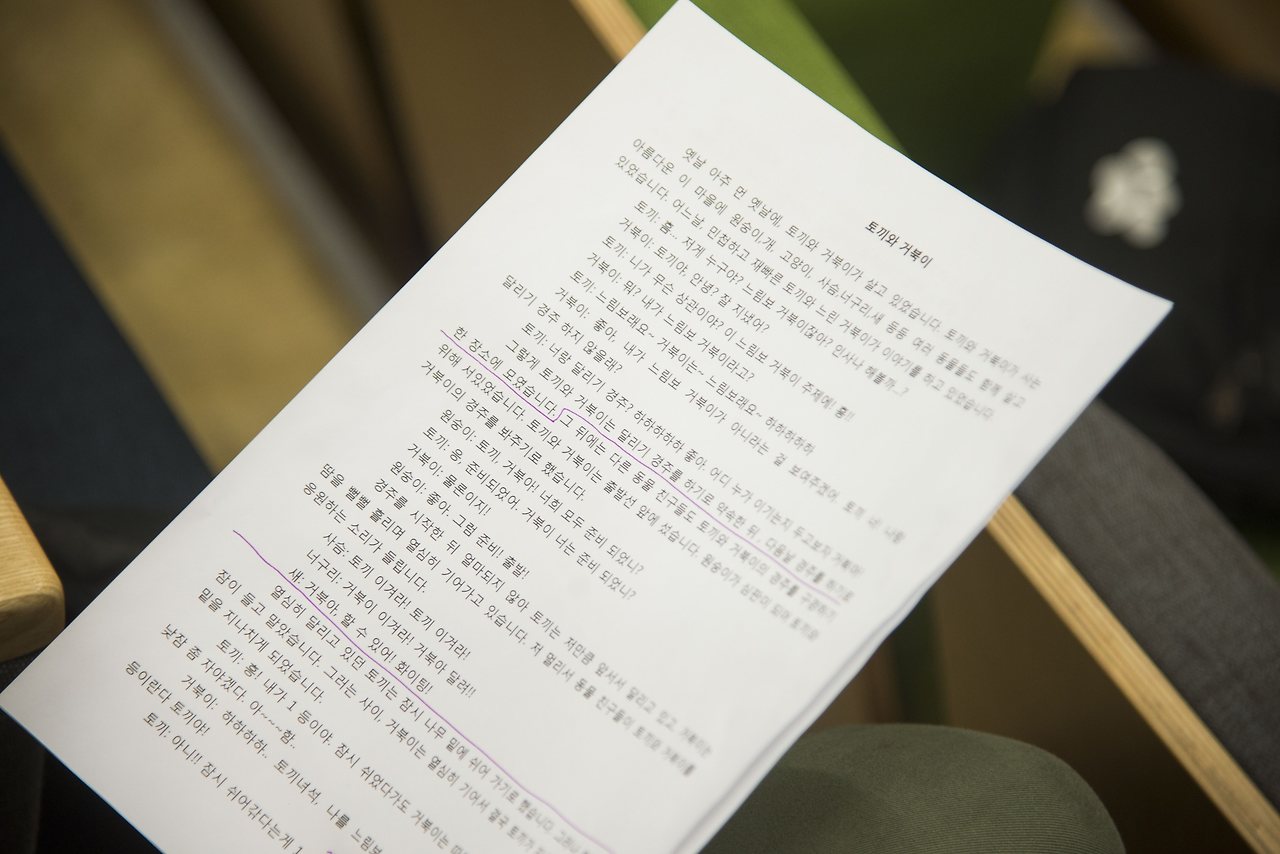 토끼와 거북이
옛날 아주 먼 옛날에, 토끼와 거북이가 살고 있었습니다. 토끼와 거북이가 사는
아름다운 이 마을에 원숭이,개, 고양이, 사슴,너구리,새 등등 여러 동물들도 함께 살고
있었습니다. 어느날, 민첩하고 재빠른 토끼와 느린 거북이가 이야기를 하고 있었습니다
토끼: 흠... 저게 누구야? 느림보 거북이잖아? 인사나 해볼까..?
거북이: 토끼야, 안녕? 잘 지냈어?
토끼: 니가 무슨 상관이야? 이 느림보 거북이 주제에! 흥!!
거북이: 뭐? 내가 느림보 거북이라고?
토끼: 느림보래요~ 거북이는~ 느림보래요~ 하하하하하
거북이: 좋아, 내가 느림보 거북이가 아니라는 걸 보여주겠어. 토끼 너! 나랑
달리기 경주 하지 않을래?
토끼: 너랑 달리기 경주? 하하하하하 좋아. 어디 누가 이기는지 두고보자 거북아!
그렇게 토끼와 거북이는 달리기 경주를 하기로 약속한 뒤, 다음날 경주를 하기로
한 장소에 모였습니다. 그 뒤에는 다른 동물 친구들도 토끼와 거북이의 경주를 구경하기
위해 서있었습니다. 토끼와 거북이는 출발선 앞에 섰습니다. 원숭이가 심판이 되어 토끼와
거북이의 경주를 봐주기로 했습니다.
원숭이: 토끼, 거북아! 너희 모두 준비 되었니?
토끼: 응, 준비되었어. 거북이 너는 준비 되었니?
거북이: 물론이지!
원숭이: 좋아. 그럼 준비! 출발!
경주를 시작한 뒤 얼마되지 않아 토끼는 저만큼 앞서서 달리고 있고, 거북이는
땀을 뻘뻘 흘리며 열심히 기어가고 있습니다. 저 멀리서 동물 친구들이 토끼와 거북이를
응원하는 소리가 들립니다.
사슴: 토끼 이겨라! 토끼 이겨라!
너구리: 거북이 이겨라! 거북아 달려!!
새: 거북아, 할 수 있어! 화이팅!
열심히 달리고 있던 토끼는 잠시 나무 밑에 쉬어 가기로 했습니다. 그러나
잠이 들고 말았습니다. 그러는 사이, 거북이는 열심히 기어서 결국 토끼가
밑을 지나치게 되었습니다.
토끼: 흥! 내가 1 등이야. 잠시 쉬었다가도 거북이는
낮잠 좀 자야겠다. 아~~~함..
거북이: 하하하하.. 토끼녀석, 나를 느림보
등이란다 토끼야!
토끼: 아니!! 잠시 쉬어갔다는게 1